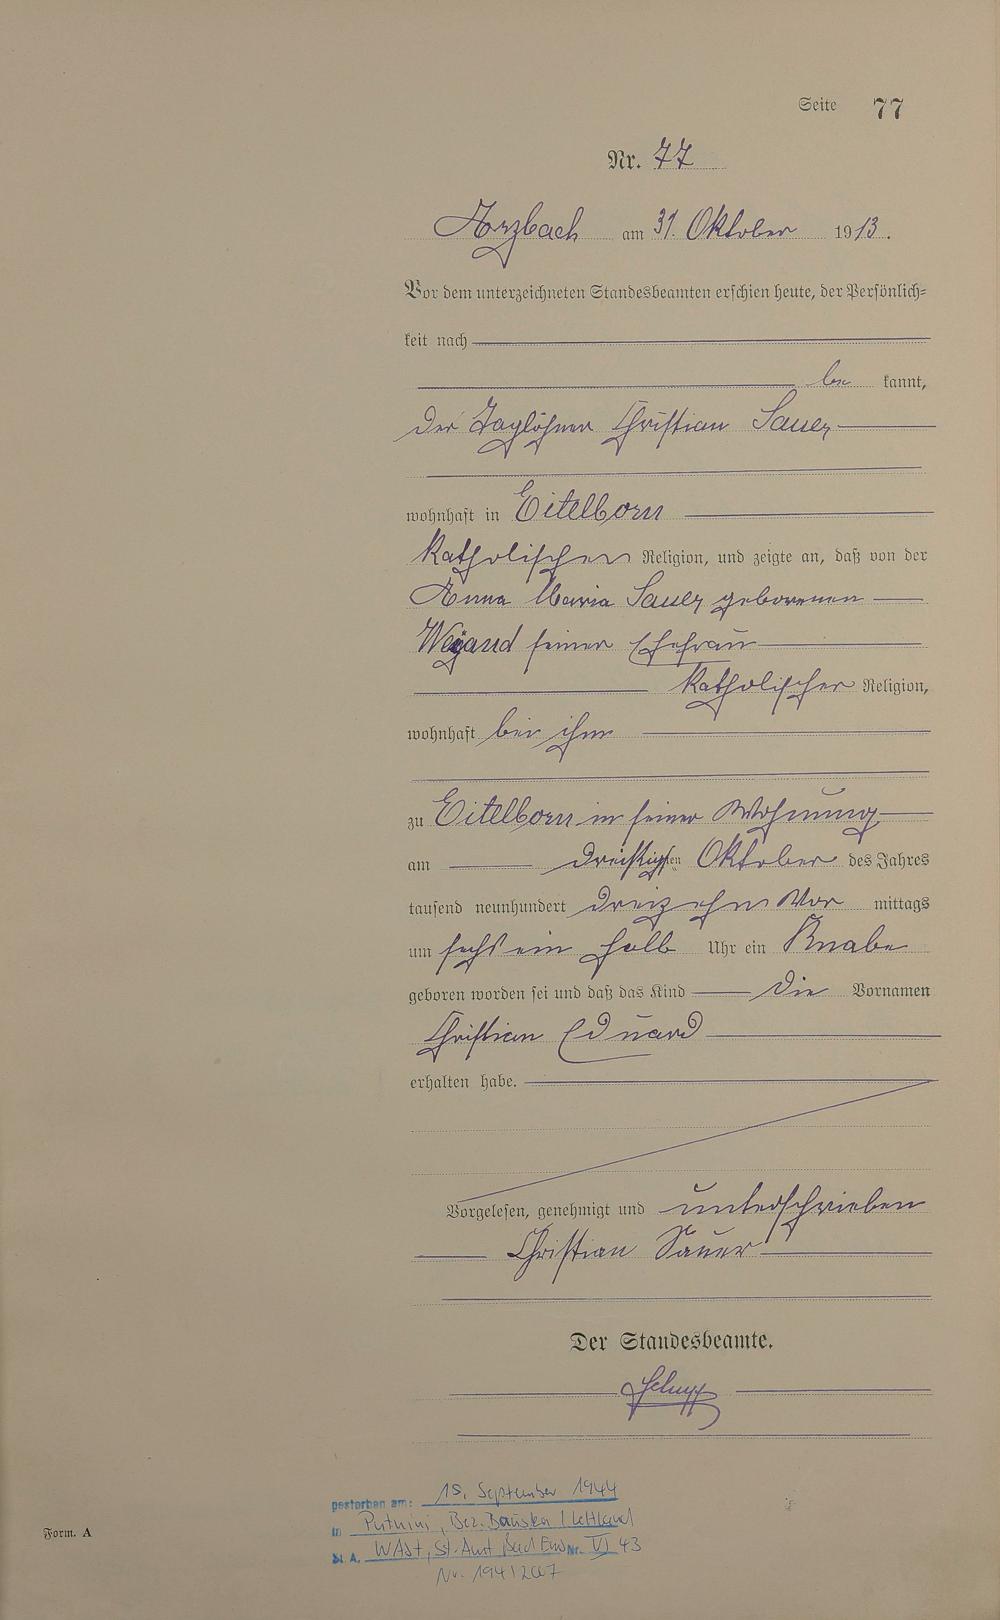 Seite 77
Nr. 77
Arzbach am 31. Oktober 1913.
Vor dem unterzeichneten Standesbeamten erschien heute, der Persönlich-
keit nach
be kannt,
der Taglöhner Christian Sauer
wohnhaft in Eitelborn
katholischer Religion, und zeigte an, daß von der
Anna Maria Sauer geborenen
Weyand seiner Ehefrau
katholischer Religion,
wohnhaft bei ihm
zu Eitelborn in seiner Wohnung
am dreißigsten Oktober des Jahres
tausend neunhundert dreizehn Vor mittags
um sechs ein halb Uhr ein Knabe
geboren worden sei und daß das Kind die Vornamen
Christian Eduard
erhalten habe.
Vorgelesen, genehmigt und unterschrieben
Christian Sauer
Der Standesbeamte.
gestorben am: 15. September 1944
in Putnini, Bez. Bauska / Lettland
St. A. WASt, St. Amt Bad Ems Nr. VI 43
Nr. 194/2007
Form. A